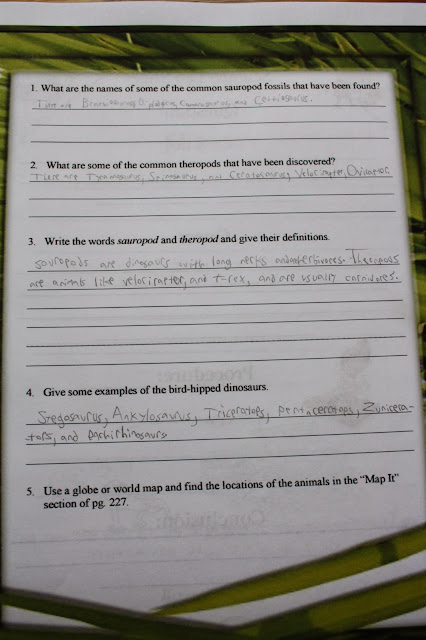 1. What are the names of some of the common sauropod fossils that have been found?
There are Brachiosaurus, and
2. What are some of the common theropods that have been discovered?
There are Tyrannosaurus, Spinosaurus, and Ceratosaurus, Velociraptor, Oviraptor.
3. Write the words sauropod and theropod and give their definitions.
sauropods are dinosaurs with long necks and Theropods
are animals like velociraptor, and t-rex, and are usually carnivores.
4. Give some examples of the bird-hipped dinosaurs.
Stegosaurus, Ankylosaurus, Triceratops, Pentaceratops, Zunicera-
tops, and
5. Use a globe or world map and find the locations of the animals in the “Map It”
section of pg. 227.